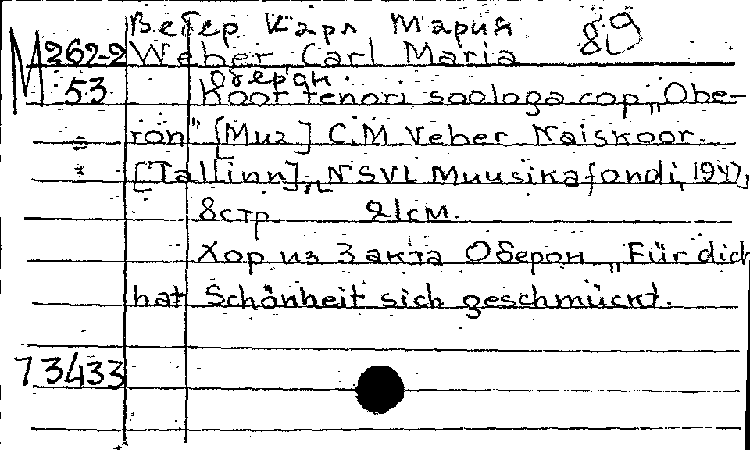 Вебер Карл Мария 89
М 269-2 Weber, Carl Maria
Оберон.
53 Koor tenori soologa oop. „Obe-
ron" [Муз] C.M Veber Naiskoor.
[Tallinn], „NSVL Muusikafondi, 1947,
8стр. 21см.
Хор из 3 акта Оберон „Für dich
hat Schönheit sich geschmückt.
73433